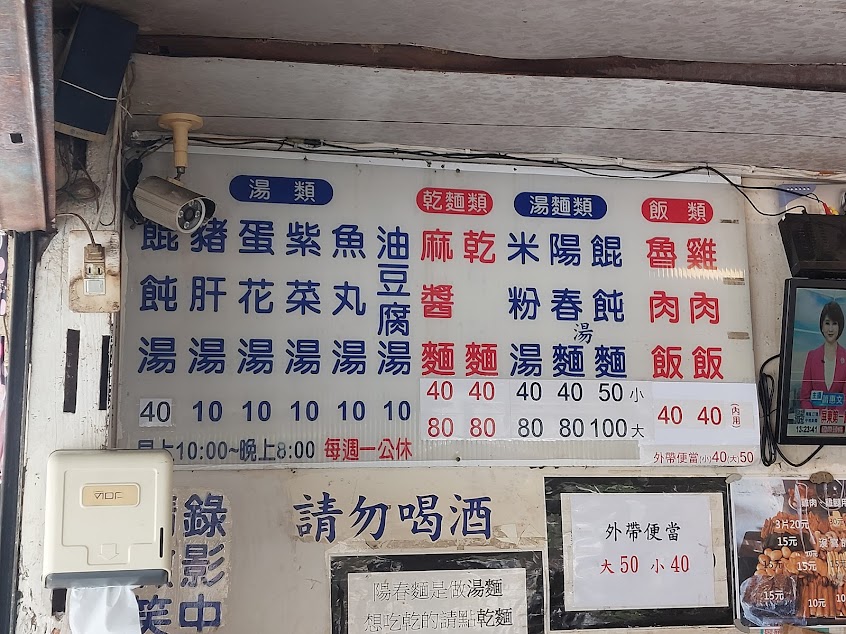 湯類
餛飩湯 40
豬肝湯 10
蛋花湯 10
紫菜湯 10
魚丸湯 10
油豆腐湯 10
乾麵類
麻醬麵 40 80
乾麵 40 80
湯麵類
米粉湯 40 80
陽春湯麵 40 80
餛飩麵 50小 100大
飯類
魯肉飯 40
雞肉飯 40
(內用)
外帶便當(小)40(大)50
早上10:00~晚上8:00 每週一公休
請勿喝酒
錄影中
笑
陽春麵是做湯麵
想吃乾的請點乾麵
外帶便當
大50 小40
3片20元
15元
15元
15元
10元
13:23:41